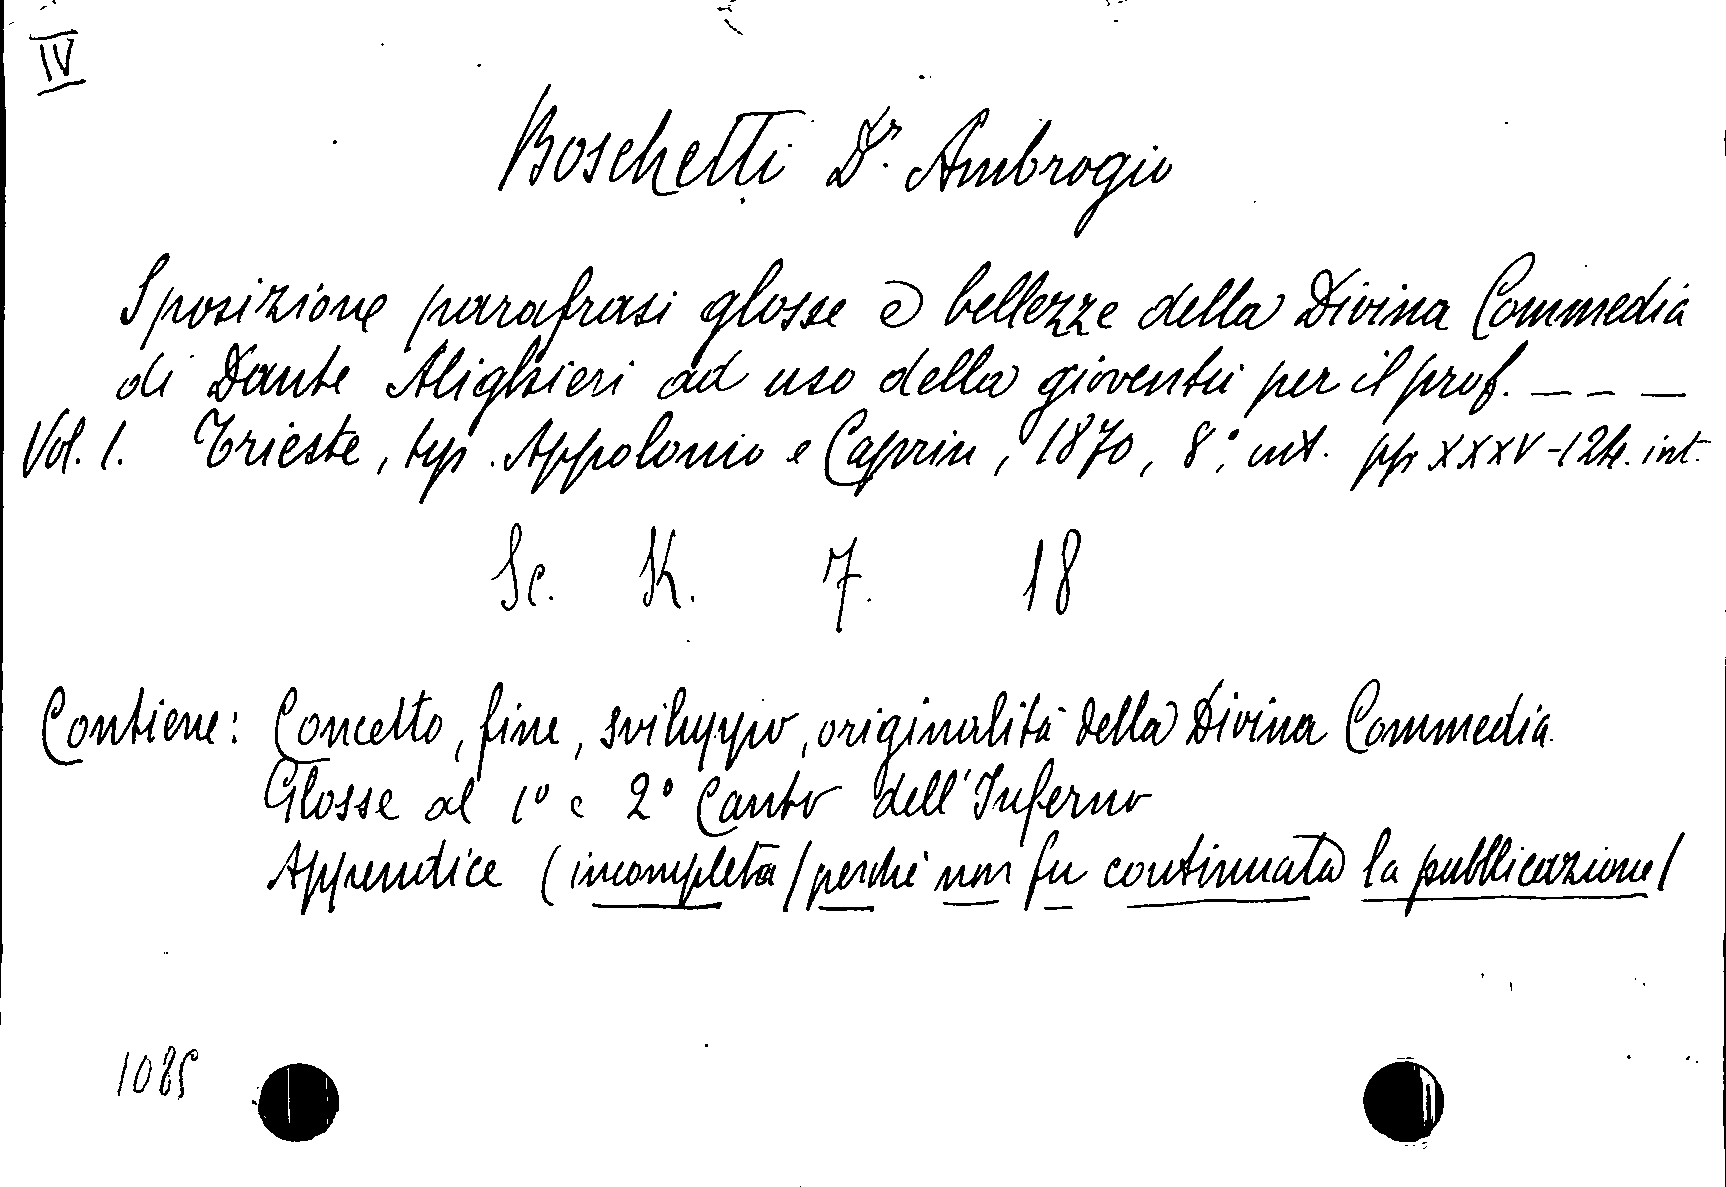 IV
Boschetti Dr. Ambrogio
Sposizione parafrasi glosse e bellezze della Divina Commedia
di Dante Alighieri ad uso della gioventù per il prof. _ _ _
Vol. 1. Trieste, typ. Appolonio e Caprin, 1870, 8°, ant. pp XXXV-124. int.
Sc. K. 7. 18
Contiene: Concetto, fine, sviluppo, originalità della Divina Commedia.
Glosse al 1° e 2° Canto dell'Inferno
Appendice (incompleta / perchè non fu continuata la pubblicazione/
1085